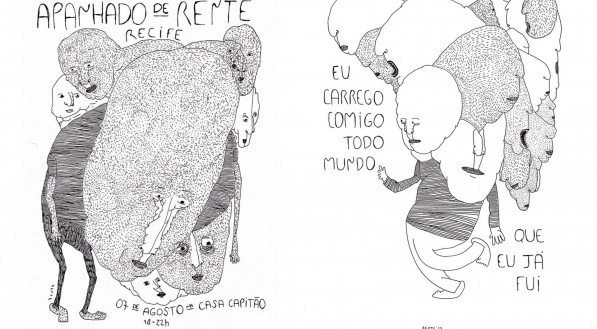 APANHADO DE RENTE
RECIFE
07 DE AGOSTO EM CASA CAPITÃO
18-22h
EU
CARREGO
COMIGO
TODO
MUNDO
QUE
EU JÁ
FUI